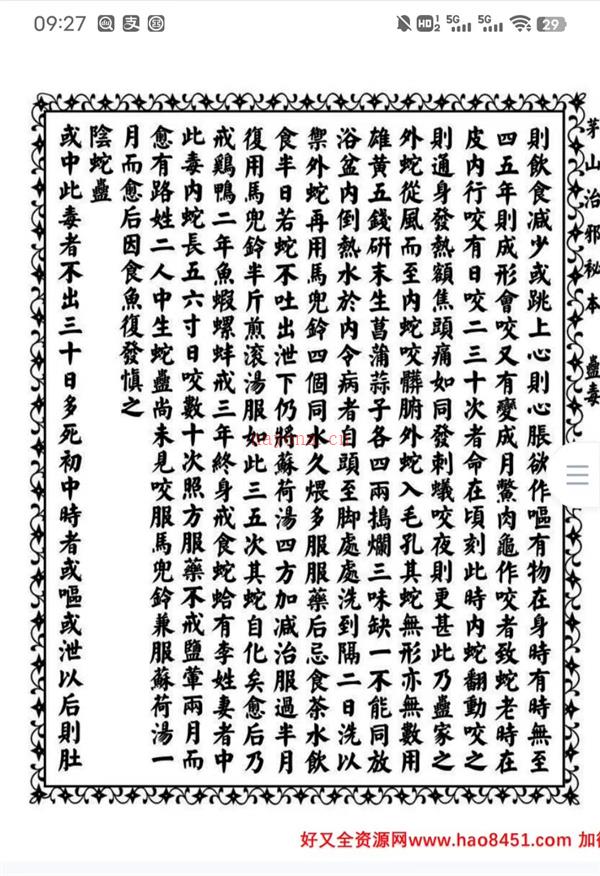 09:27
HD 1 2 5G 5G 29
茅山治邪秘本 蠱毒
則飲食减少或跳上心則心脹欲作嘔有物在身時有時無至
四五年則成形會咬又有變成月鱉肉龜作咬者致蛇老時在
皮内行咬有日咬二三十次者命在頃刻此時内蛇翻動咬之
則通身發熱額焦頭痛如同發刺蟻咬夜則更甚此乃蠱家之
外蛇從風而至内蛇咬髒腑外蛇入毛孔其蛇無形亦無數用
雄黄五錢研末生菖蒲蒜子各四兩搗爛三味缺一不能同放
浴盆内倒熱水於内令病者自頭至脚處處洗到隔二日洗以
禦外蛇再用馬兜鈴四個同水久煨多服服藥后忌食茶水飲
食半日若蛇不吐出泄下仍將蘇荷湯四方加减治服過半月
復用馬兜鈴半斤煎滚湯服如此三五次其蛇自化矣愈后乃
戒鷄鴨二年魚蝦螺蚌戒三年終身戒食蛇蛤有李姓妻者中
此毒内蛇長五六寸日咬數十次照方服藥不戒鹽葷兩月而
愈有路姓二人中生蛇蠱尚未見咬服馬兜鈴兼服蘇荷湯一
月而愈后因食魚復發慎之
陰蛇蠱
或中此毒者不出三十日多死初中時者或嘔或泄以后則肚
好又全资源网www.hao8451.com 加微